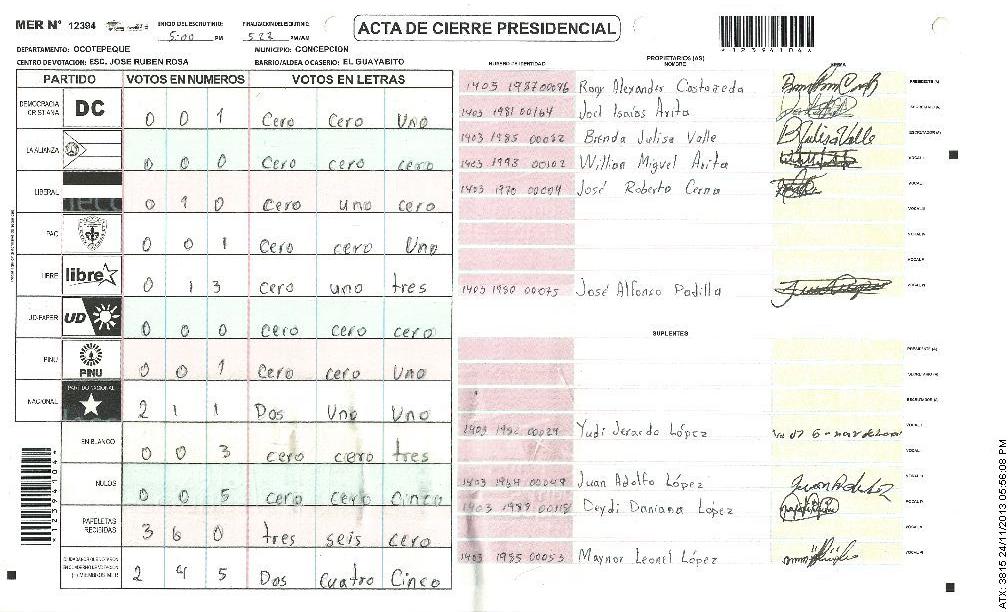 MER N° 12394 INICIO DEL ESCRUTINIO: 5:00 PM FINALIZACION ESCRUTINIO: 5 22 PM/AM
ACTA DE CIERRE PRESIDENCIAL
DEPARTAMENTO: OCOTEPEQUE MUNICIPIO: CONCEPCION
CENTRO DE VOTACION: ESC. JOSE RUBEN ROSA BARRIO/ALDEA O CASERIO: EL GUAYABITO
PARTIDO VOTOS EN NUMEROS VOTOS EN LETRAS
DEMOCRACIA CRISTIANA DC 0 0 1 Cero Cero Uno
LA ALIANZA 0 0 0 Cero cero cero
LIBERAL 0 1 0 Cero uno cero
PAC 0 0 1 Cero cero Uno
LIBRE libre 0 1 3 Cero uno tres
UD-FAPER UD 0 0 0 Cero cero cero
PINU PINU 0 0 1 Cero cero Uno
NACIONAL PARTIDO NACIONAL 2 1 1 Dos Uno Uno
EN BLANCO 0 0 3 cero cero tres
NULOS 0 0 5 cero cero Cinco
PAPELETAS RECIBIDAS 3 6 0 tres seis cero
2 4 5 Dos cuatro Cinco
NUMERO DE IDENTIDAD PROPIETARIOS (AS) NOMBRE FIRMA
Rony Alexander Castaneda PRESIDENTE (A)
1403 1981 00164 Joel Isaías Arita SECRETARIO (A)
1403 1985 Brenda Julisa Valle BJulisaValle ESCRUTADOR (A)
1403 1993 00102 Willian Miguel Arita VOCAL I
1403 1970 00004 José Roberto Cerna VOCAL II
VOCAL III
VOCAL IV
VOCAL V
1403 1980 00075 José Alfonso Padilla VOCAL VI
SUPLENTES
PRESIDENTE (A)
SECRETARIO (A)
ESCRUTADOR (A)
Yudi Jerardo López VOCAL I
VOCAL II
Juan Adolfo López VOCAL III
Deydi Daniana López VOCAL IV
VOCAL V
1403 1985 00053 Maynor Leonel López VOCAL VI
ATX: 3815 24/11/2013 05:56:08 PM